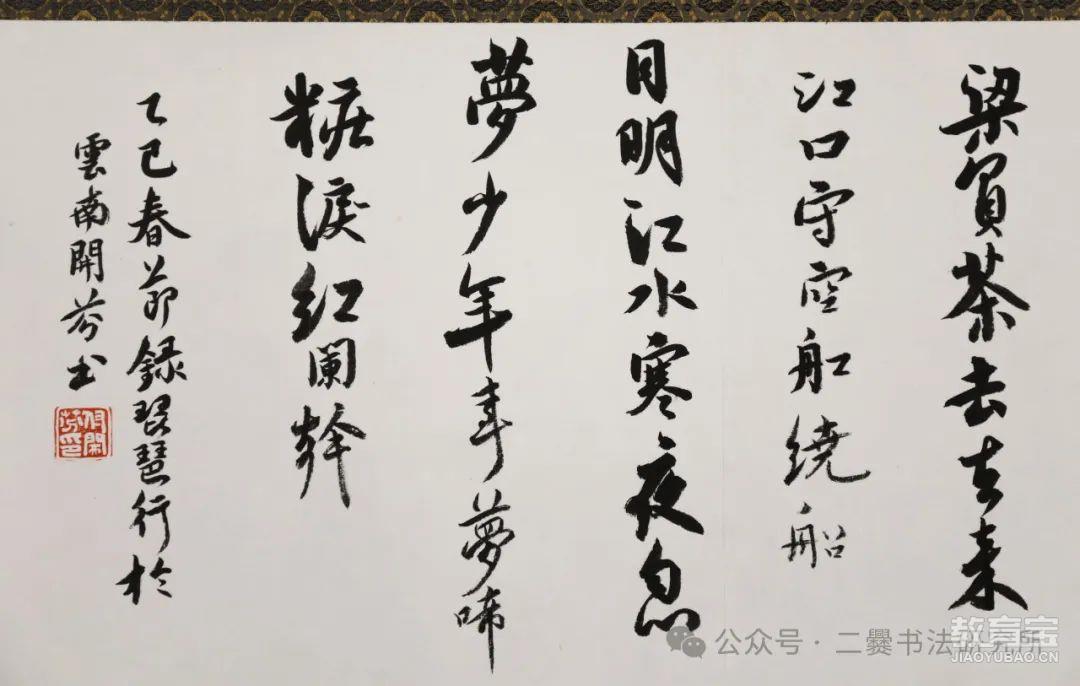 梁買茶去去來
江口守空船繞船
月明江水寒夜忽
夢少年事夢啼
粧淚紅闌幹
乙巳春節録琵琶行於
雲南開芬書
公众号·二爨书法研究所
教育宝
JIAOYUBAO.CN